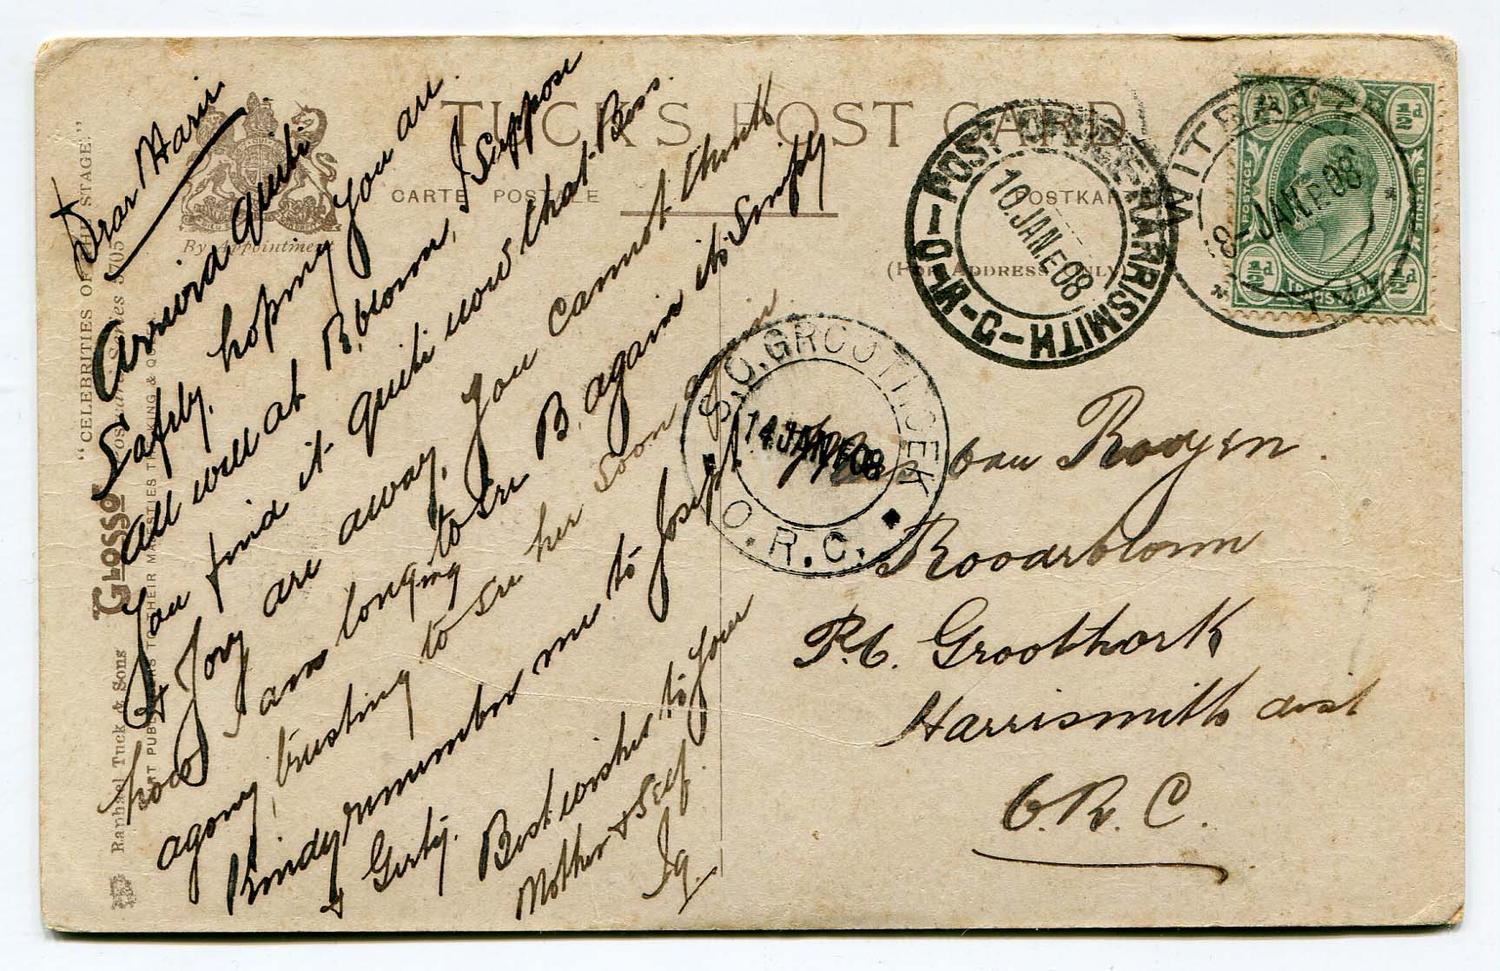 TUCK'S POST CARD
CARTE POSTALE
POSTKARTE
(FOR ADDRESS ONLY)
By Appointment
"CELEBRITIES OF THE STAGE."
GLOSSO
Raphael Tuck & Sons
Dear Marie
Arrived quite
Safely, hoping you are
all well at B.blom, I Suppose
You find it quite now that Bess
& Joey are away, You cannot think
how I am longing to see B. again its Simply
agony, trusting to see her soon again
Kindly remember me to Joseph
& Gerty. Best wishes to your
Mother & Self.
van Rooyen.
Roodeblom
P.O. Groothoek
Harrismith dist
O.R.C.
POST OFFICE-HARRISMITH
O-R-C
10.JAN.E08
S.O.GROOTHOEK
14JAN08
O.R.C.
8-JAN.E.08
POSTAGE
REVENUE
½d
½d
½d
½d
TRANSVAAL